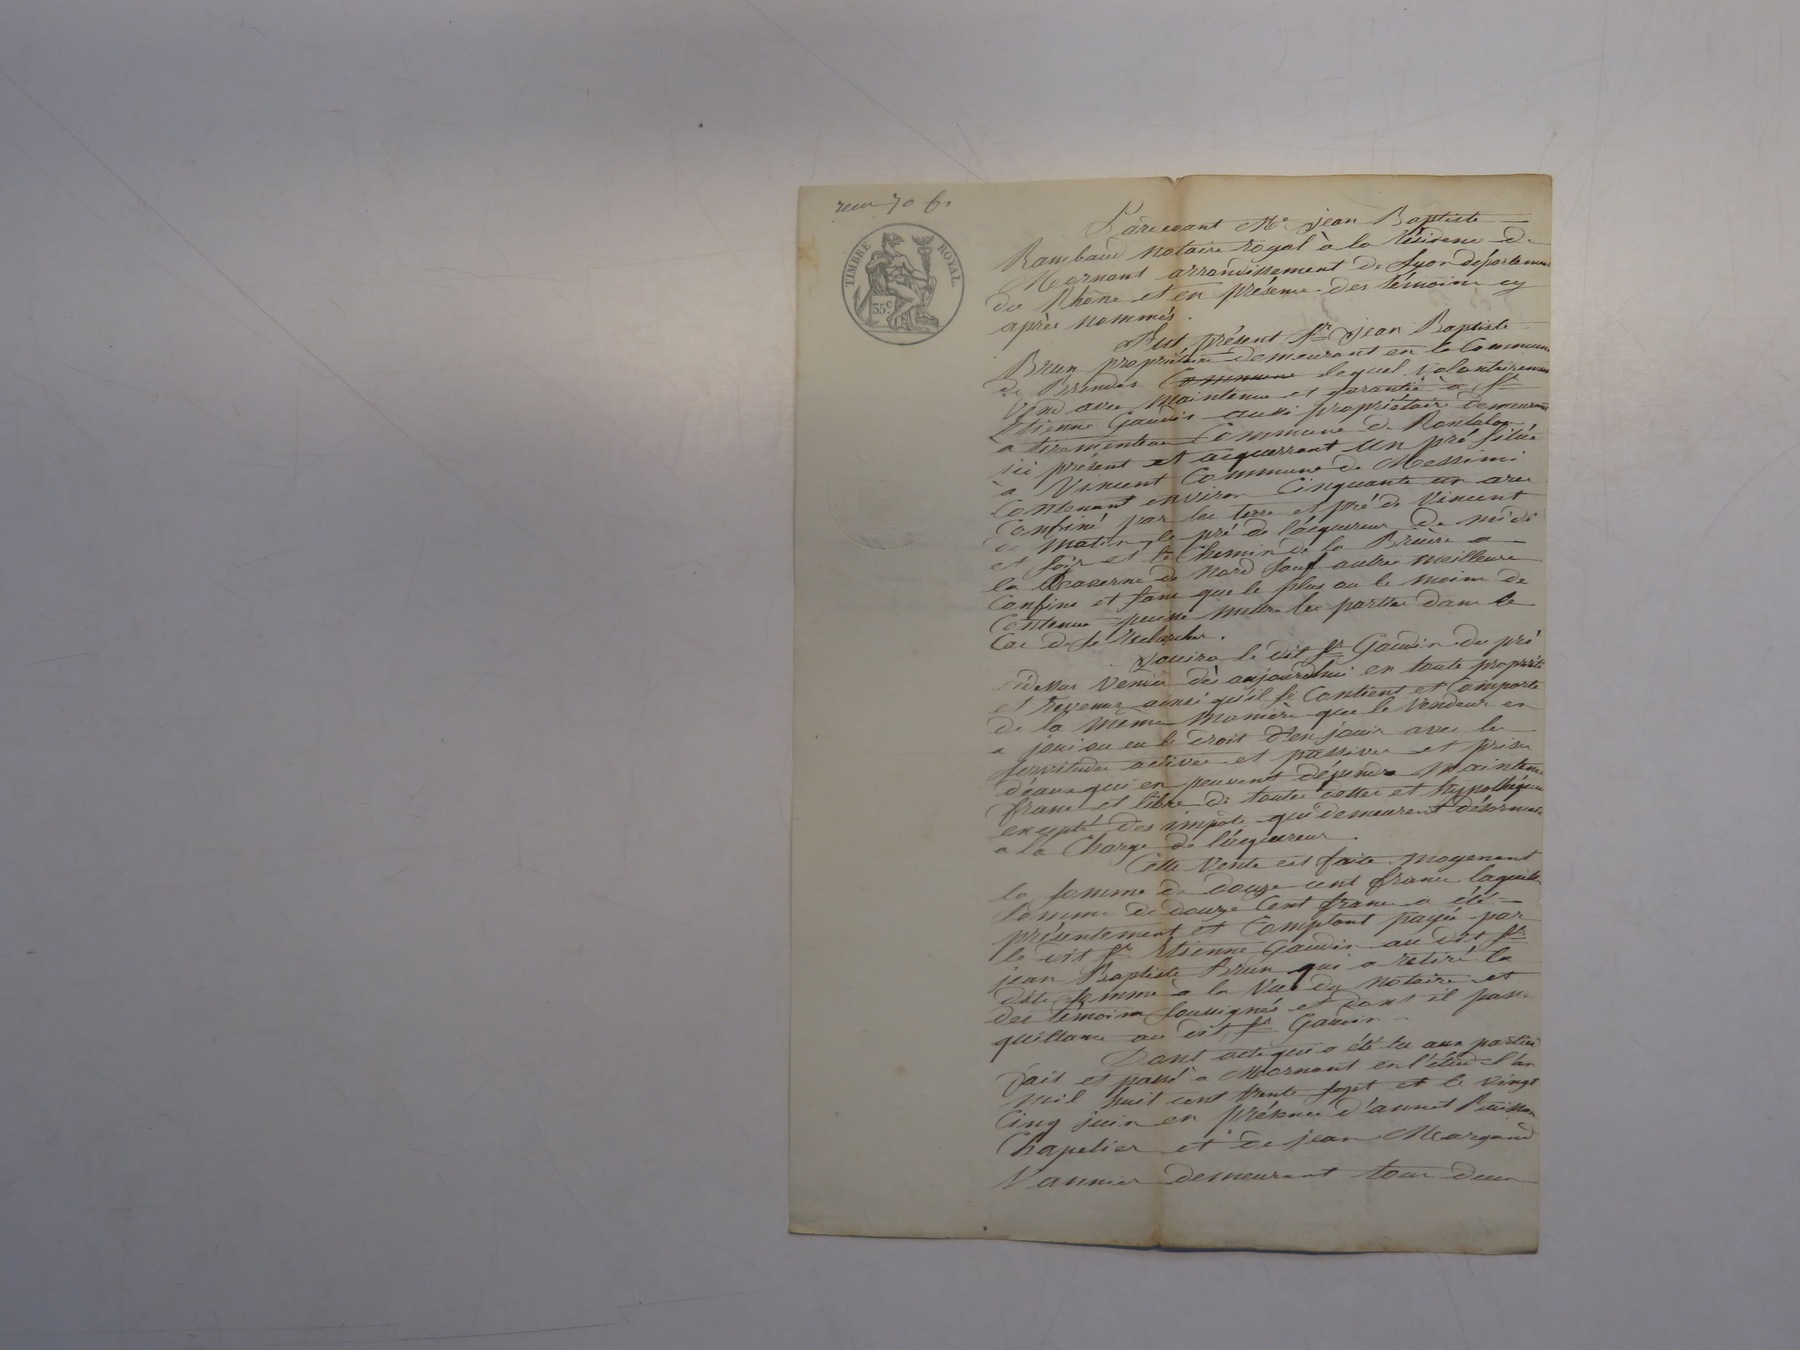 recu 70 f.
TIMBRE ROYAL
35c
Pardevant Me jean Baptiste
Rambaud notaire royal à la résidence de
Mornant arrondissement de Lyon département
du Rhône et en présence des témoins cy
après nommés.
Fut présent sr jean Baptiste
Brun propriétaire demeurant en la Commune
de Brindas Commune lequel volontairement
vend avec maintenue et garantie à sr
Etienne Gaudin aussi propriétaire demeurant
a Commune de Rontalon
ici présent et aiquerrant un pré situé
à Vincent Commune de Messimi
Contenant environ Cinquante un ares
Confiné par les terre et pré de Vincent
de matin le pré de l'acquereur de midi
et soir et le Chemin de la Bruière a
la traverse de nord sauf autres meilleurs
Confins et sans que le plus ou le moins de
Contenue puisse mettre les parties dans le
Cas de se rechercher.
Jouira le dit sr Gaudin du pré
cidessus vendu dès aujourdhui en toute propriété
et revenu ainsi qu'il se Contient et Comporte
de la même manière que le vendeur en
a joui ou eu le droit d'en jouir avec les
servitudes actives et passives et prises
d'eaux qui en peuvent dépendre maintenu
franc et libre de toutes dettes et hypothèques
excepté des impôts qui demeurent désormais
a la Charge de l'acquereur.
Cette vente est faite moyenant
la somme de douze cent francs laquelle
somme de douze Cent francs a été
présentement et Comptant payée par
le dit sr Etienne Gaudin au dit sr
jean Baptiste Brun qui a retiré la
dite somme à la vue du notaire et
des témoins soussignés et dont il passe
quittance au dit sr Gaudin
Dont acte qui a été lu aux parties
fait et passé a Mornant en l'étude l'an
mil huit cent trente sept et le vingt
Cinq juin en présence d'annet Buisson
Chapelier et de jean Margand
Vannier demeurant tous deux